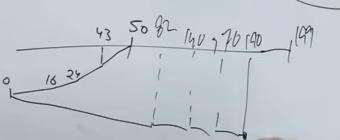 43 50 82 140 170 190 199
0 16 24